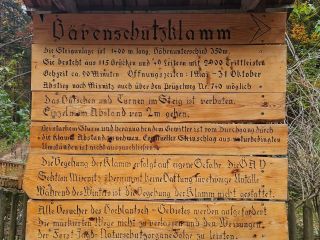 Bärenschützklamm
Die Steiganlage ist 1400 m lang, Höhenunterschied 350m.
Sie besteht aus 115 Brücken und 49 Leitern mit 2900 Trittleisten
Gehzeit ca. 90 Minuten Öffnungszeiten: 1.Mai - 31 Oktober
Abstieg nach Mixnitz auch über den Prügelweg Nr 740 möglich
Das Rutschen und Turnen im Steig ist verboten.
Einzeln im Abstand von 2m gehen.
Bei starkem Sturm und herannahendem Gewitter ist vom Durchgang durch
die Klamm Abstand zu nehmen. Steinschlag aus naturbedingten
Umständen ist nicht ausgeschlossen.
Die Begehung der Klamm erfolgt auf eigene Gefahr, die ÖAV
Sektion Mixnitz übernimmt keine Haftung für etwaige Unfälle
Während des Winters ist die Begehung der Klamm nicht gestattet.
Alle Besucher des Hochlantsch - Gebietes werden aufgefordert
die markierten Wege nicht zu verlassen und den Weisungen
der Forst- Jagd- Naturschutzorgane Folge zu leisten.